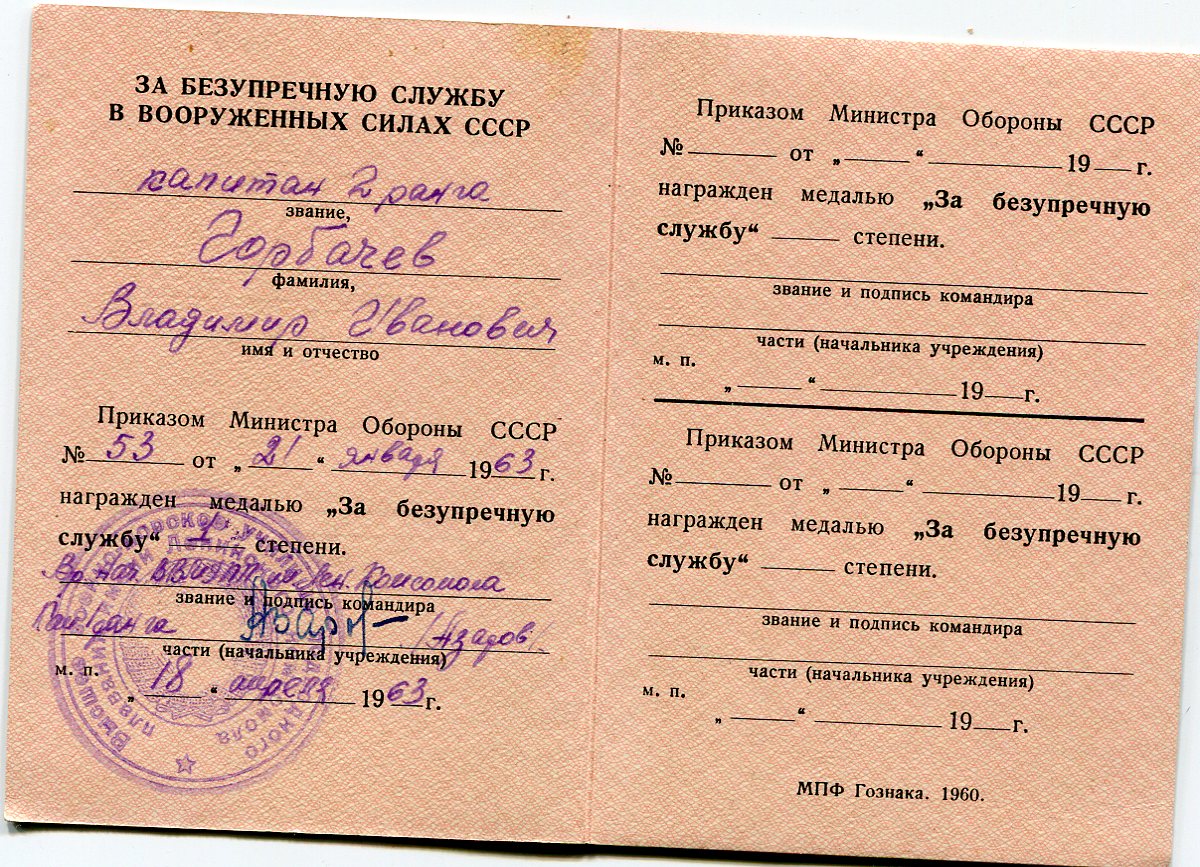 ЗА БЕЗУПРЕЧНУЮ СЛУЖБУ
В ВООРУЖЕННЫХ СИЛАХ СССР
капитан 2 ранга
звание,
Горбачев
фамилия,
Владимир Иванович
имя и отчество
Приказом Министра Обороны СССР
№ 53 от „21“ января 1963 г.
награжден медалью „За безупречную
службу“ 1 степени.
Вр. нач. ВВМУПП им. Лен. Комсомола
звание и подпись командира
Кап. 1 ранга (Азаров)
части (начальника учреждения)
м. п.
„18“ апреля 1963 г.
Приказом Министра Обороны СССР
№ от „ “ 19 г.
награжден медалью „За безупречную
службу“ степени.
звание и подпись командира
части (начальника учреждения)
м. п.
„ “ 19 г.
Приказом Министра Обороны СССР
№ от „ “ 19 г.
награжден медалью „За безупречную
службу“ степени.
звание и подпись командира
части (начальника учреждения)
м. п.
„ “ 19 г.
МПФ Гознака. 1960.